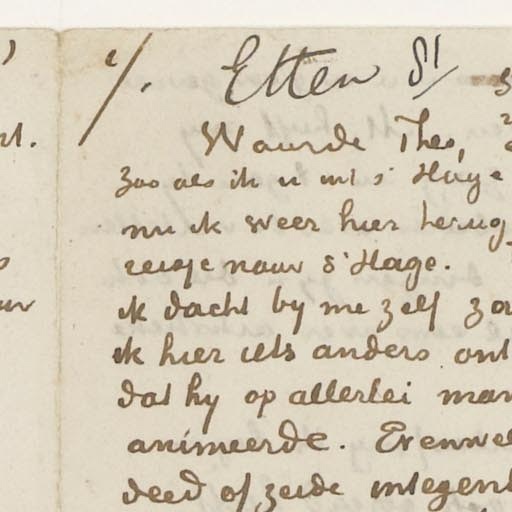 Etten 81
Waarde Theo,
Zooals ik u uit s' Hage
nu ik weer hier terug
reisje naar s' Hage.
ik dacht by me zelf
ik hier iets anders ont
dat hy op allerlei man
animeerde. Evenwel
deed of zeide integen